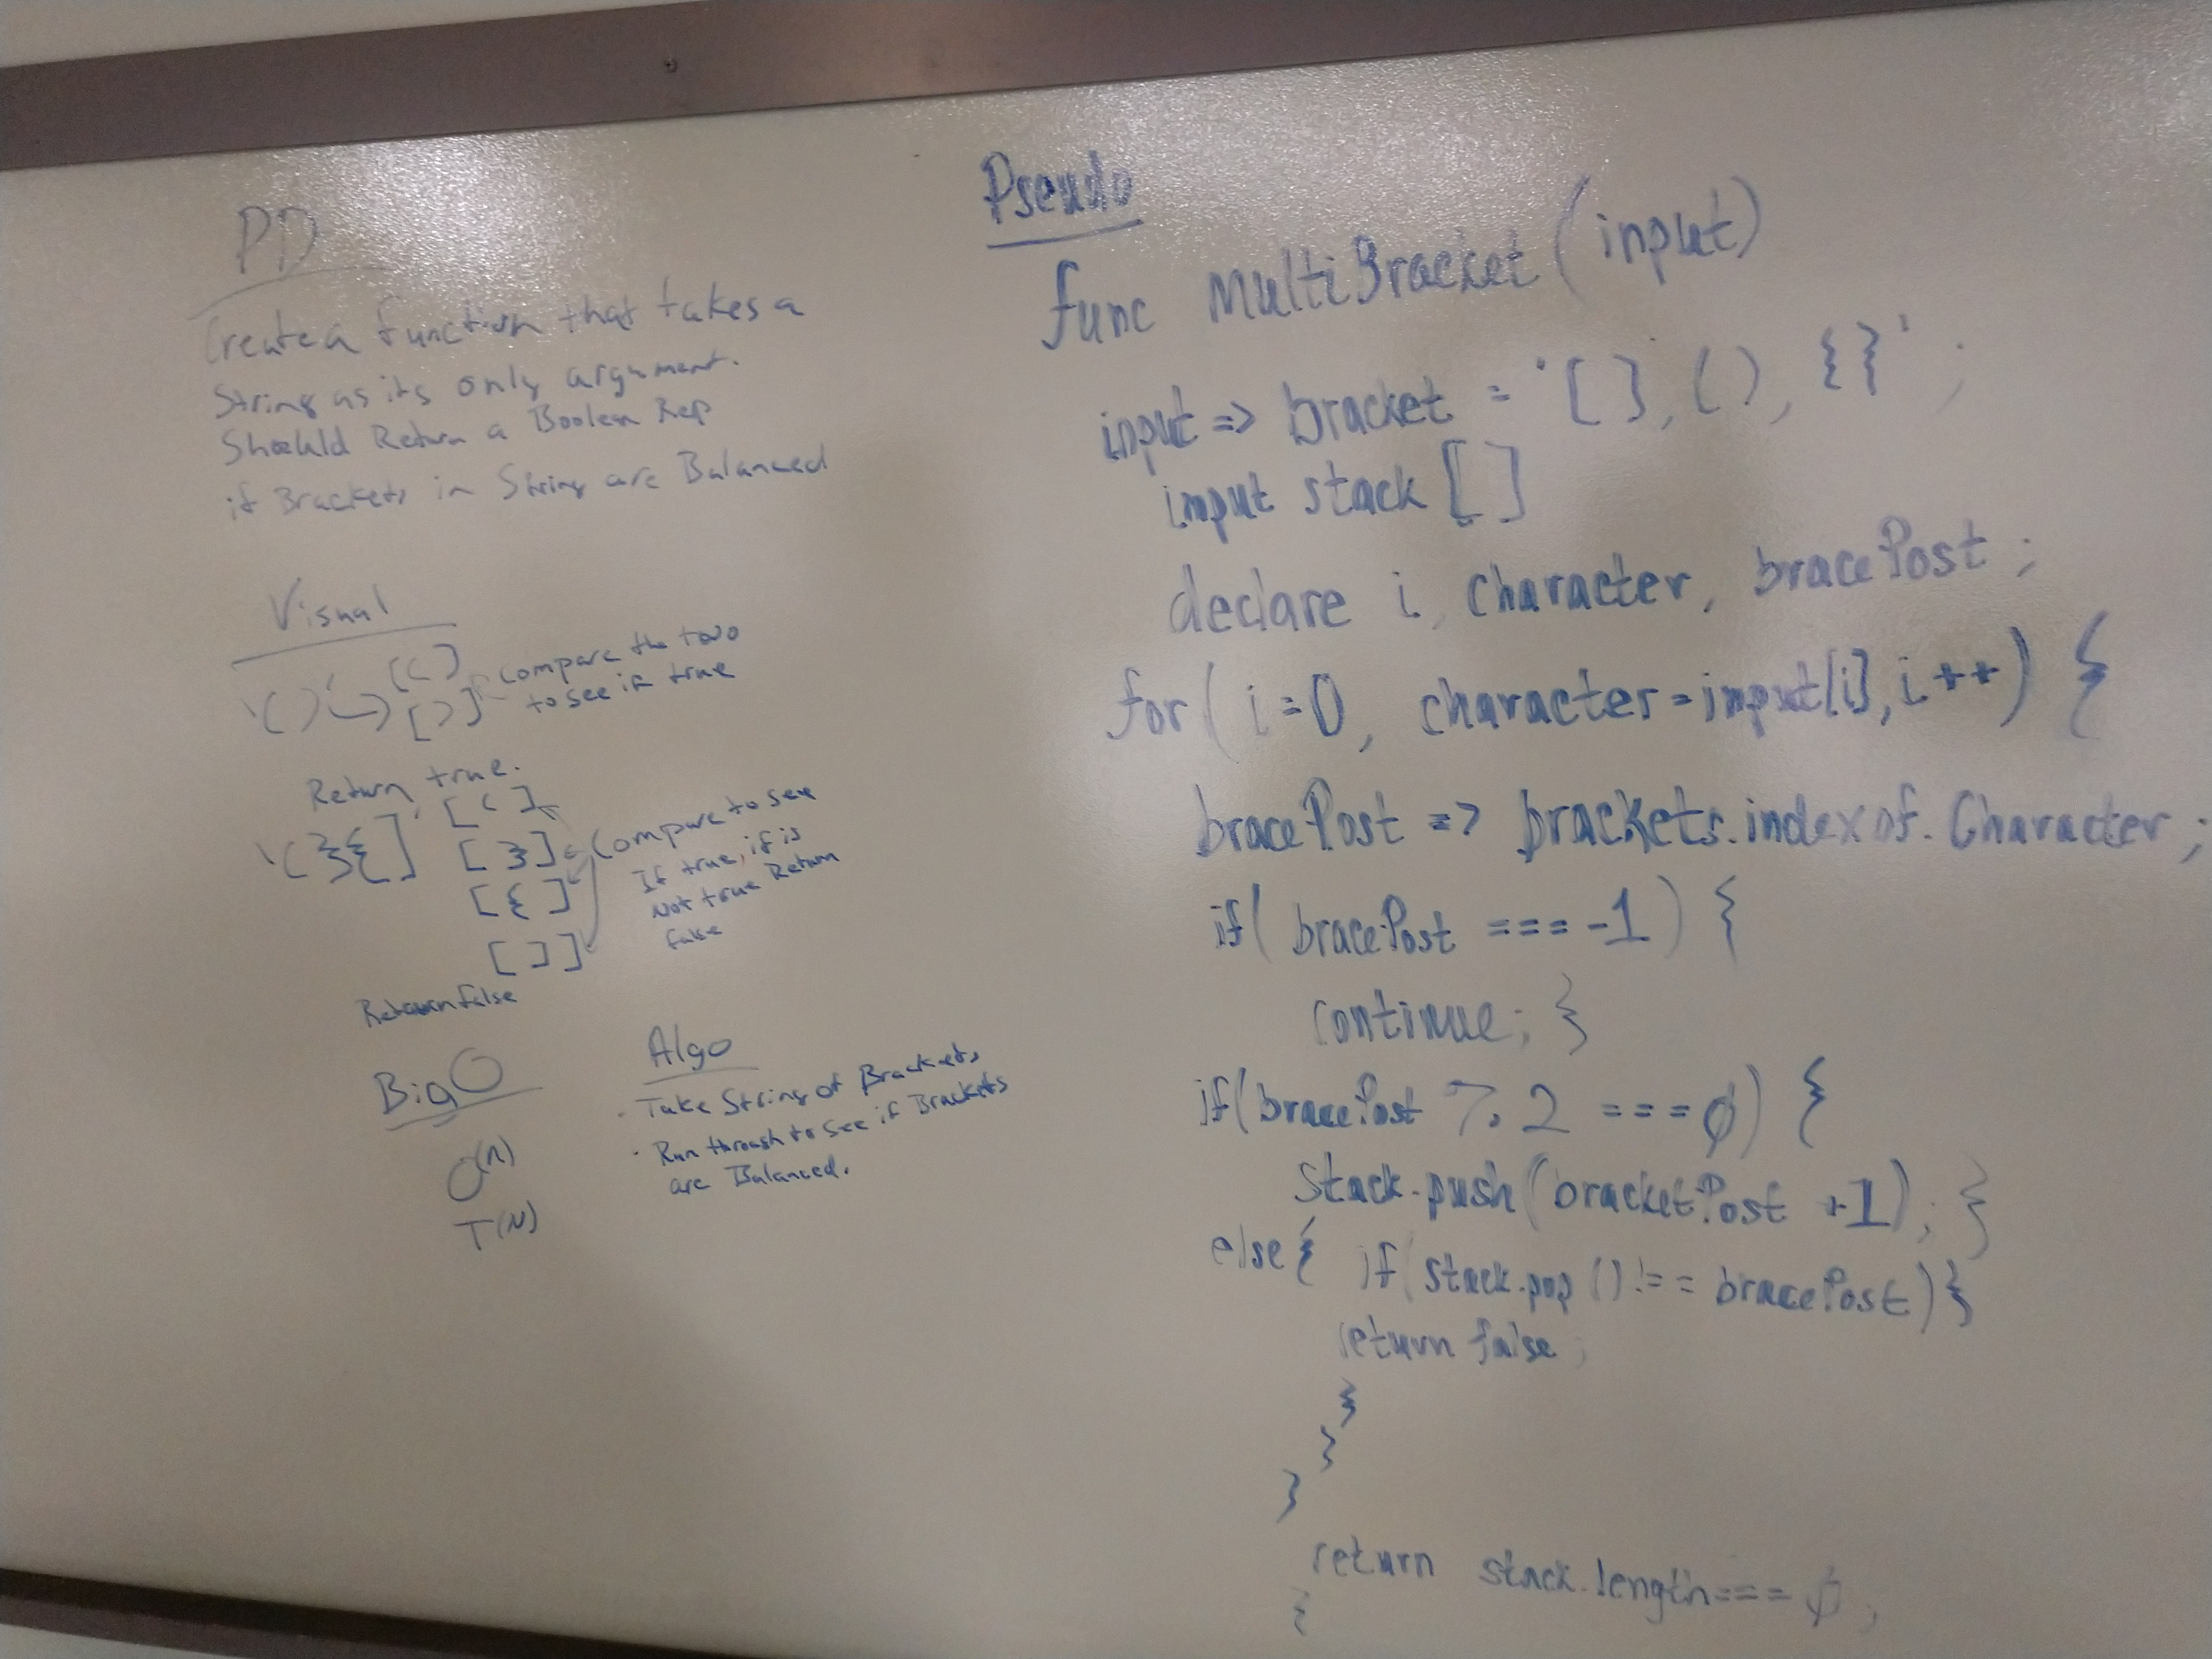 PD
Create a function that takes a
String as its only argument.
Should Return a Boolean Rep
if Brackets in String are Balanced
Visual
[(]
'()' → [)]
compare the two
to see if true
Return true.
'(}{]'
[(]
[}]
[{]
[]]
Compare to see
If true, if is
Not true Return
false
Return false
Big O
O(n)
T(N)
Algo
· Take String of Brackets
· Run through to see if Brackets
are Balanced.
Pseudo
func MultiBracket (input)
input => bracket = '[], (), {}' ;
input stack []
declare i, Character, bracePost ;
for( i=0, character=input[i], i++) {
bracePost => brackets.indexof.Character;
if( bracePost === -1) {
continue; }
if(bracePost % 2 === 0) {
Stack.push(bracketPost +1); }
else{ if(stack.pop() !== bracePost)}
return false;
}
}
}
return stack.length===0;
{